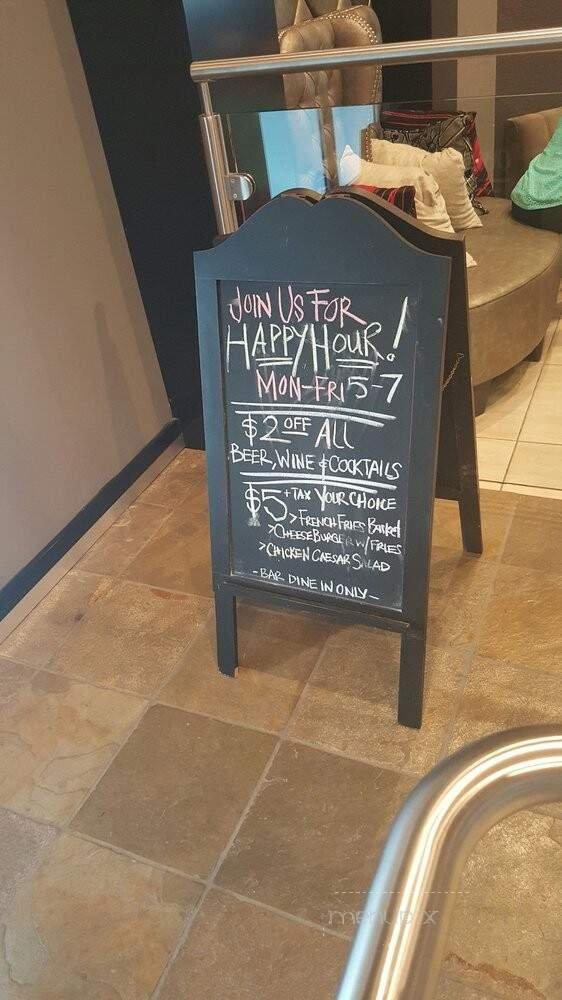 JOIN US FOR
HAPPY HOUR!
MON-FRI 5-7
$2 OFF ALL
BEER, WINE & COCKTAILS
$5 + TAX YOUR CHOICE
> FRENCH FRIES Basket
> CHEESEBURGER W/ FRIES
> CHICKEN CAESAR SALAD
- BAR DINE IN ONLY -
menupix